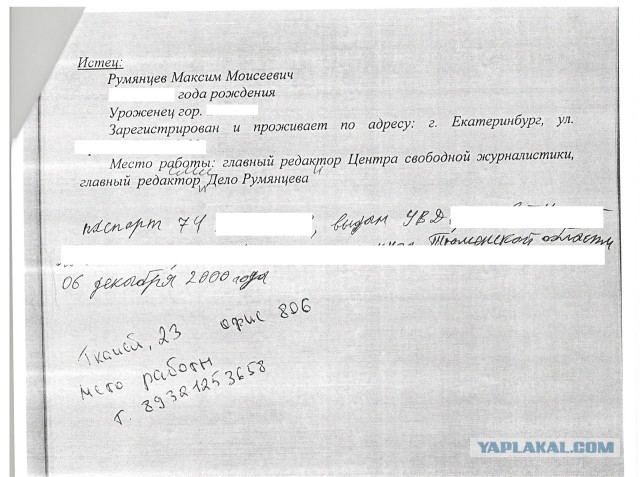 Истец:
Румянцев Максим Моисеевич
года рождения
Уроженец гор.
Зарегистрирован и проживает по адресу: г. Екатеринбург, ул.
Место работы: главный редактор Центра свободной журналистики,
главный редактор СМИ „Дело Румянцева"
паспорт 74 , выдан УВД
Тюменской области
06 декабря 2000 года
Ткачей, 23 офис 806
место работы
т. 89321253658
YAPLAKAL.COM